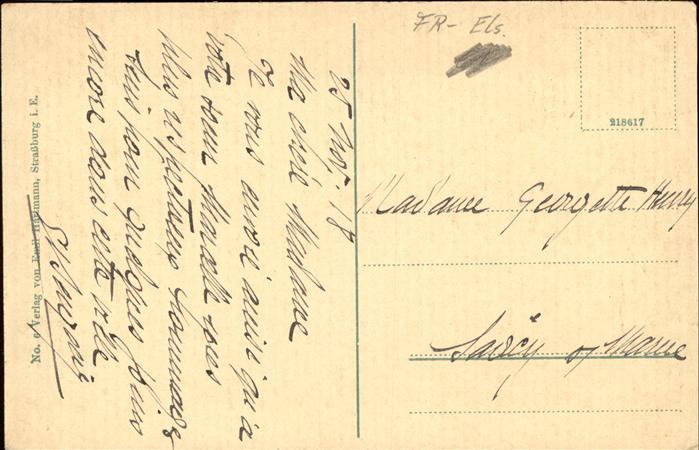 FR- Els.
218617
25 Nov. 18
Ma chère Madame
Je vous envoie ainsi qu'à
votre sœur Marcelle mes
plus respectueux hommages
suis pour quelques jours
encore dans cette ville
Madame Georgette Henry
Sarcy s/ Marne
No. 6 Verlag von Emil Hartmann, Straßburg i. E.